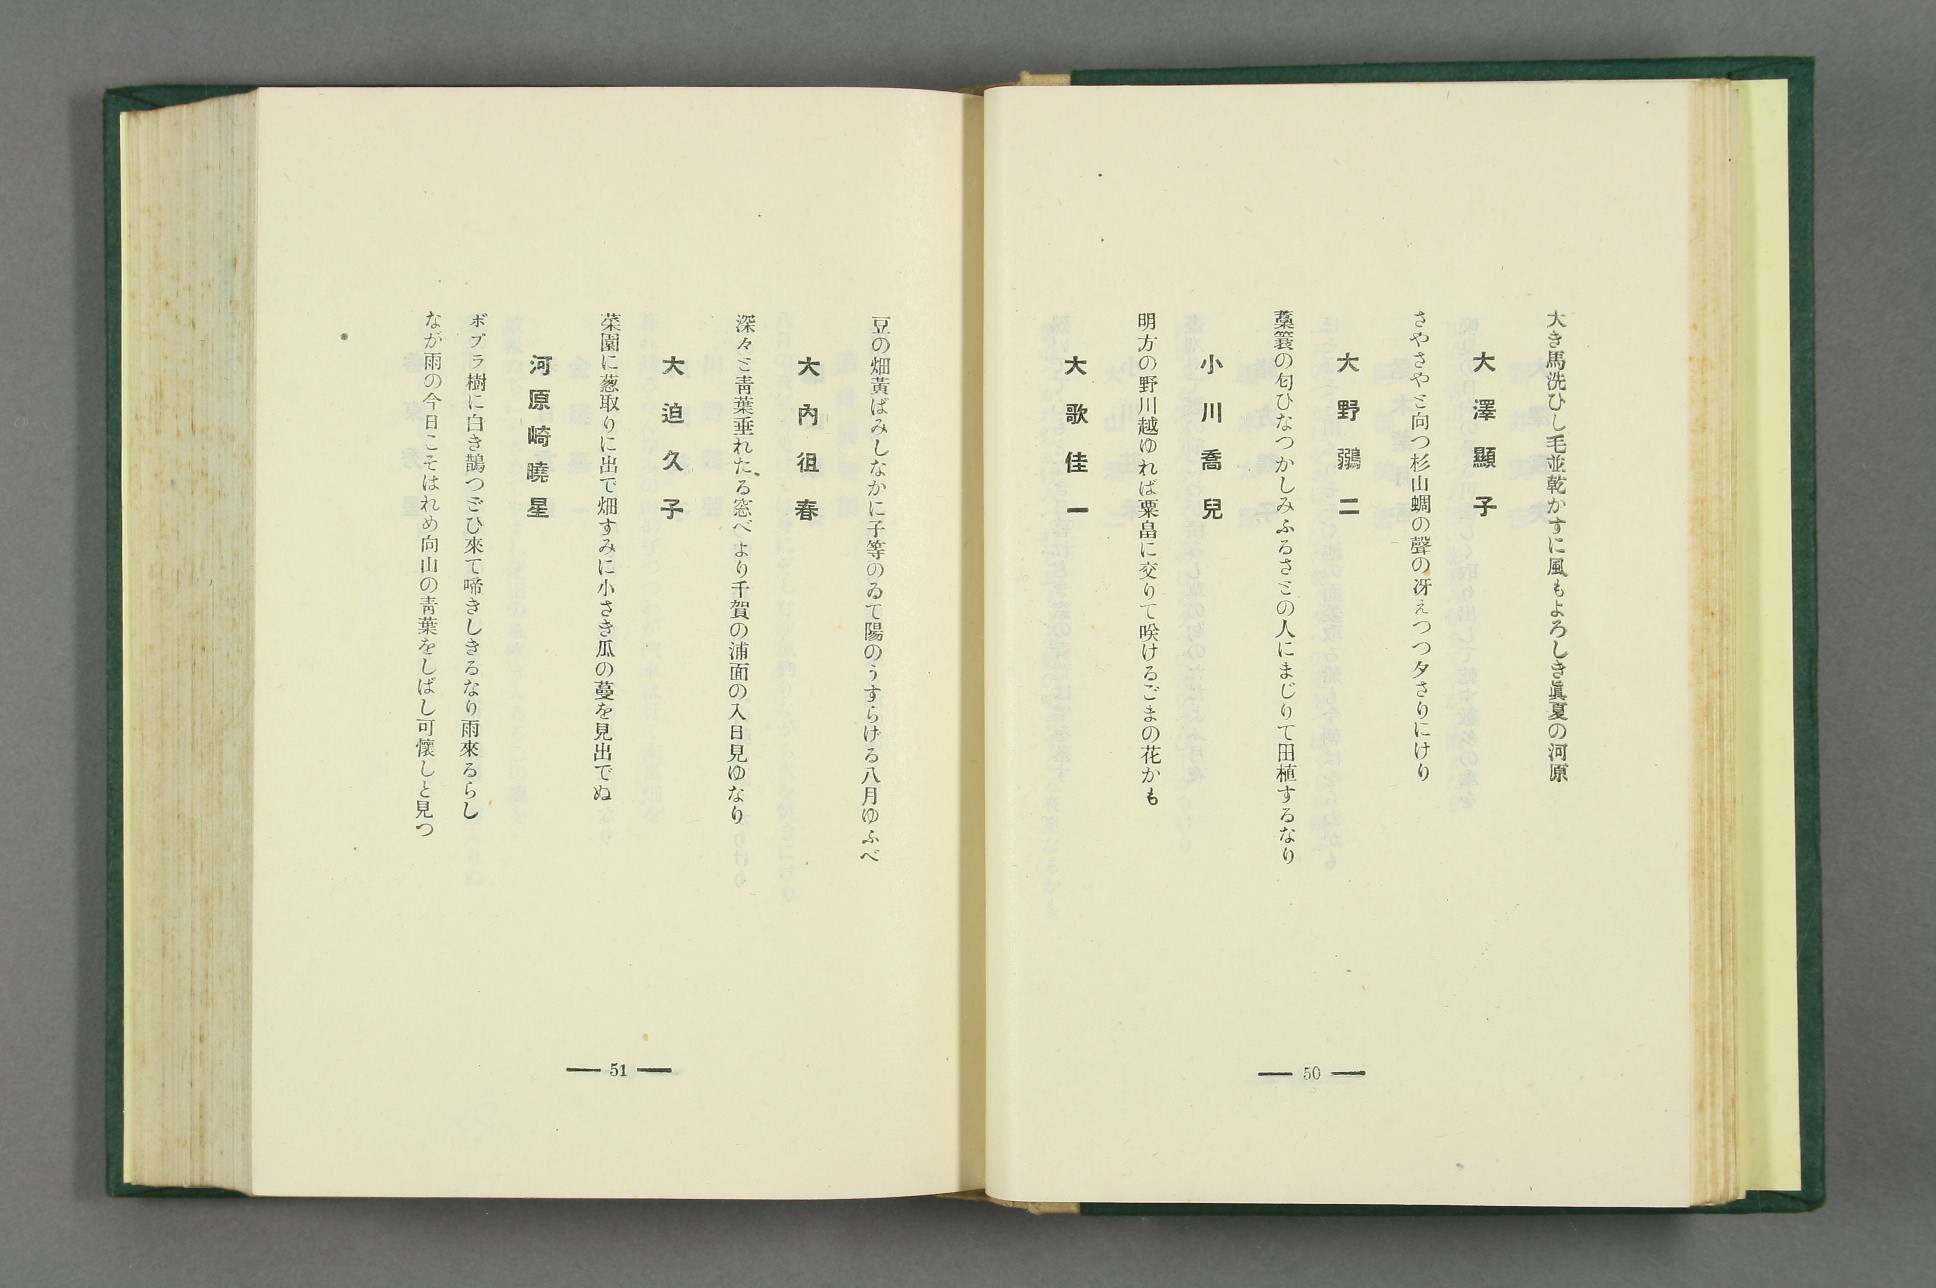 大き馬洗ひし毛並乾かすに風もよろしき眞夏の河原
大澤顯子
さやさやと向つ杉山蜩の聲の冴えつつ夕さりにけり
大野鶸二
藁簑の匂ひなつかしみふるさとの人にまじりて田植するなり
小川喬兒
明方の野川越ゆれば粟畠に交りて咲けるごまの花かも
大歌佳一
— 50 —
豆の畑黃ばみしなかに子等のゐて陽のうすらける八月ゆふべ
大內徂春
深々と靑葉垂れたる窓べより千賀の浦面の入日見ゆなり
大迫久子
菜園に葱取りに出で畑すみに小さき瓜の蔓を見出でぬ
河原崎曉星
ポプラ樹に白き鵲つどひ來て啼きしきるなり雨來るらし
なが雨の今日こそはれめ向山の靑葉をしばし可懷しと見つ
— 51 —